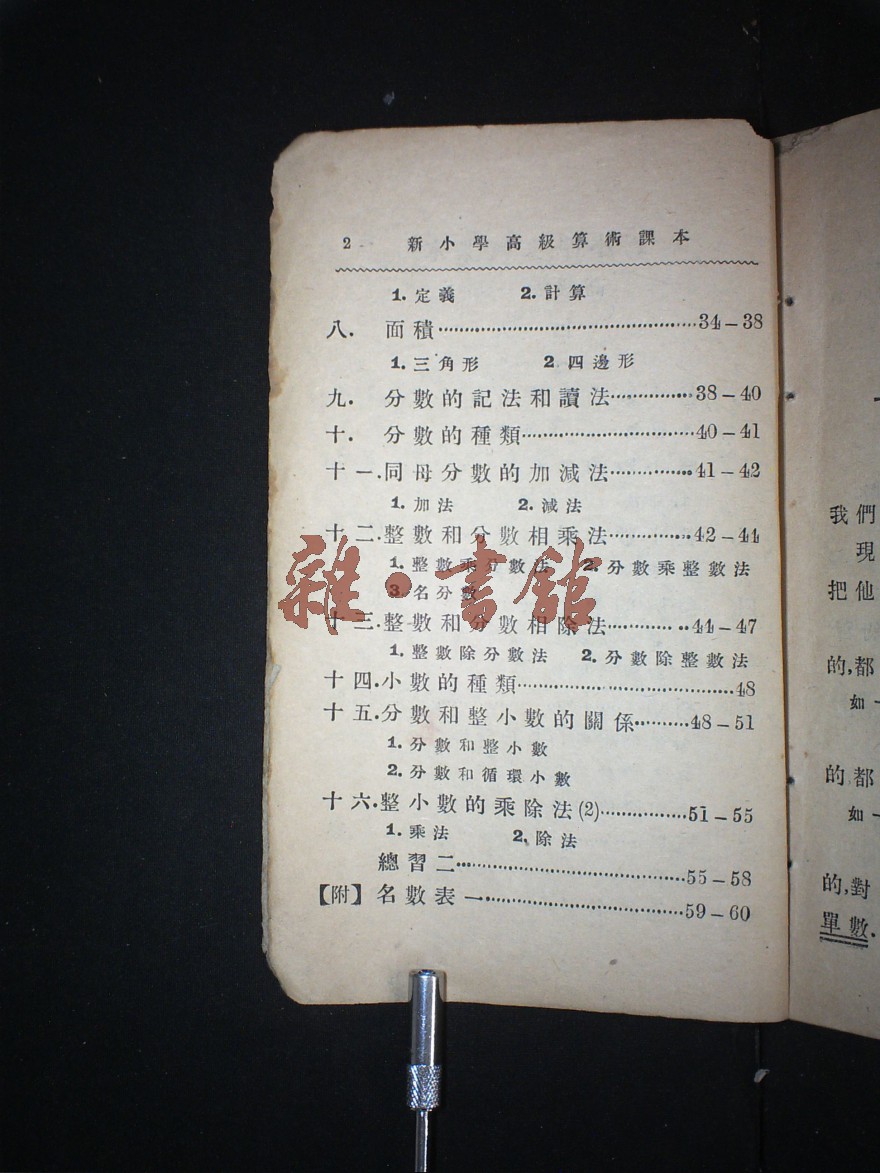 2 新小學高級算術課本
1. 定義 2. 計算
八. 面積……34–38
1. 三角形 2 四邊形
九. 分數的記法和讀法……38–40
十. 分數的種類……40–41
十一.同母分數的加減法……41–42
1. 加法 2. 減法
十二.整數和分數相乘法……42–44
1. 整數乘分數法 2. 分數乘整數法
3. 名分數
十三.整數和分數相除法……44–47
1. 整數除分數法 2. 分數除整數法
十四.小數的種類……48
十五.分數和整小數的關係……48–51
1. 分數和整小數
2. 分數和循環小數
十六.整小數的乘除法(2)……51–55
1. 乘法 2. 除法
總習二……55–58
【附】名數表一……59–60
雜·書館
我們
現
把他
的,都
如一
的都
如一
的,對
單數.